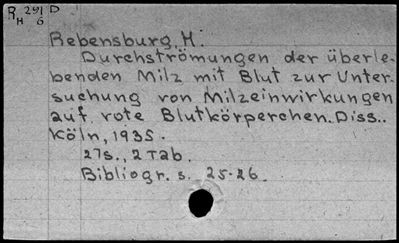 R 291 D
H 6
Rebensburg, H.
Durchströmungen der überle-
benden Milz mit Blut zur Unter-
suchung von Milzeinwirkungen
auf rote Blutkörperchen. Diss..
Köln, 1935.
27s., 2 Tab.
Bibliogr. s. 25-26.